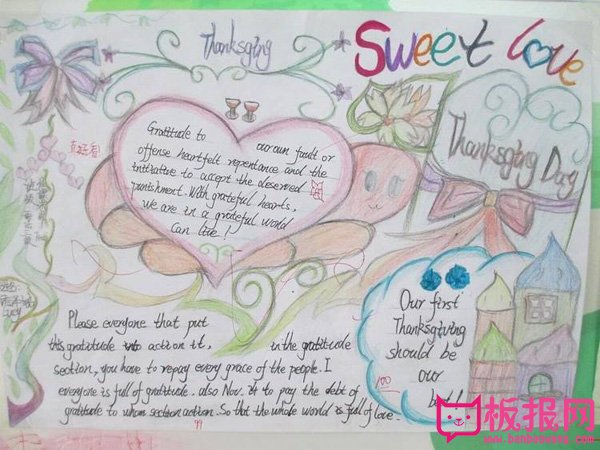 Thanksging
Sweet love
Thanksging Day
Gratitude to our own fault or
offense heartfelt repentance and the
initiative to accept the deserved
punishment. With grateful hearts,
we are in a grateful world
can live!
Our first
Thanksgiving
should be
our
100
Please everyone that put
this gratitude into action it, in the gratitude
section, you have to repay every grace of the people. I
everyone is full of gratitude. also Nov. 24 to pay the debt of
gratitude to whom section action. So that the whole world is full of love.
99
Lucy
板报网
www.banbaowang.com